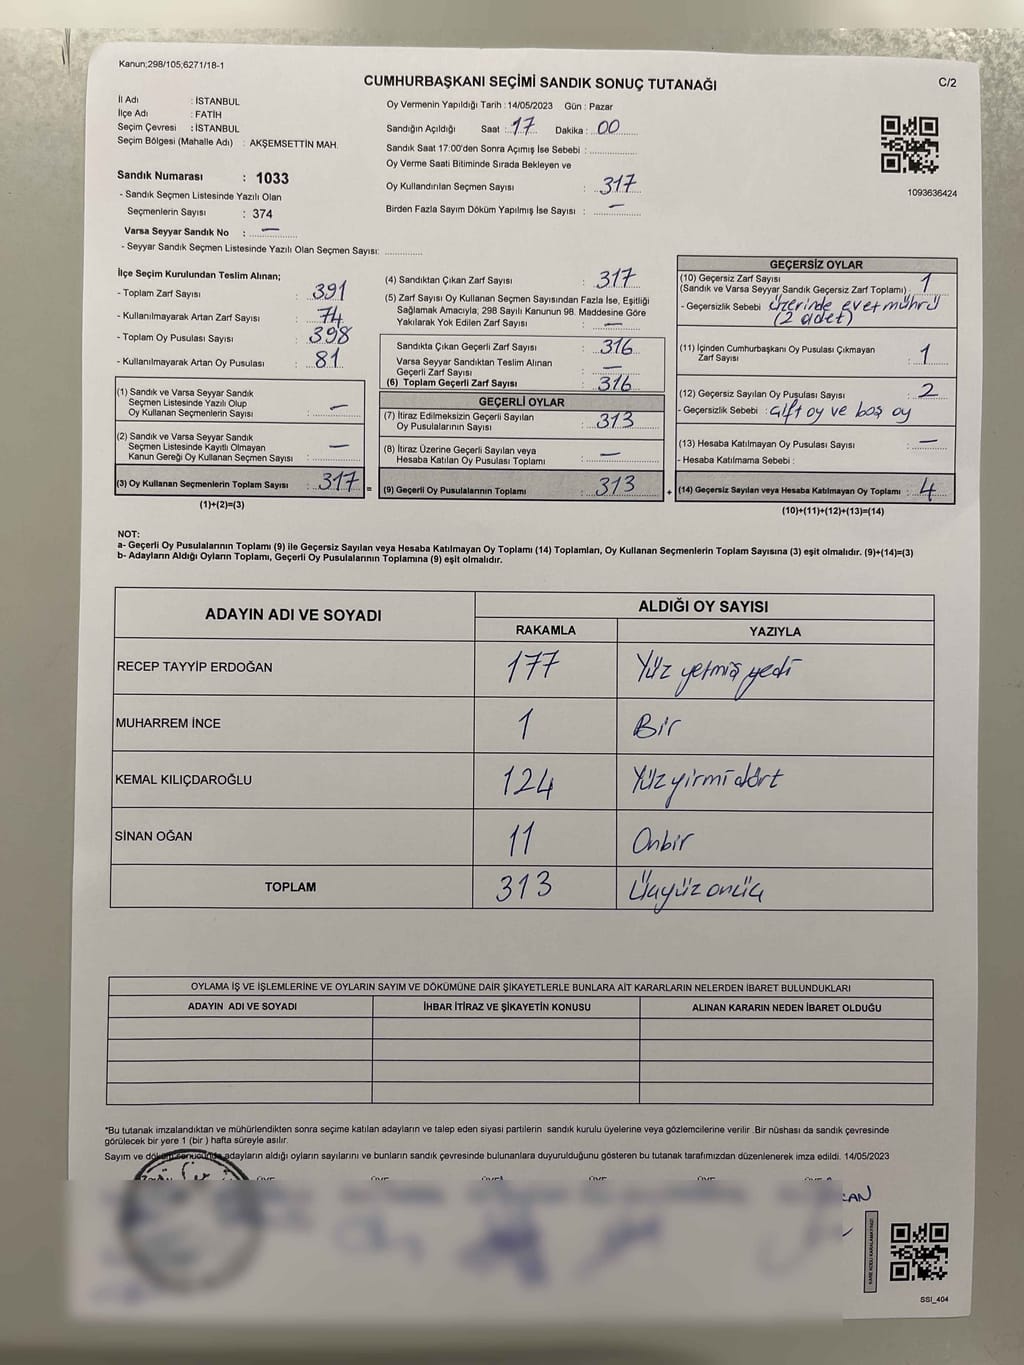 Kanun;298/105,6271/18-1
CUMHURBAŞKANI SEÇİMİ SANDIK SONUÇ TUTANAĞI
C/2
İl Adı : İSTANBUL
İlçe Adı : FATİH
Seçim Çevresi : İSTANBUL
Seçim Bölgesi (Mahalle Adı) : AKŞEMSETTİN MAH.
Sandık Numarası : 1033
- Sandık Seçmen Listesinde Yazılı Olan
Seçmenlerin Sayısı : 374
Varsa Seyyar Sandık No : —
- Seyyar Sandık Seçmen Listesinde Yazılı Olan Seçmen Sayısı:
Oy Vermenin Yapıldığı Tarih : 14/05/2023 Gün : Pazar
Sandığın Açıldığı Saat : 17 Dakika : 00
Sandık Saat 17:00'den Sonra Açımış İse Sebebi :
Oy Verme Saati Bitiminde Sırada Bekleyen ve
Oy Kullandırılan Seçmen Sayısı : 317
Birden Fazla Sayım Döküm Yapılmış İse Sayısı : —
1093636424
İlçe Seçim Kurulundan Teslim Alınan;
- Toplam Zarf Sayısı : 391
- Kullanılmayarak Artan Zarf Sayısı : 74
- Toplam Oy Pusulası Sayısı : 398
- Kullanılmayarak Artan Oy Pusulası : 81
(1) Sandık ve Varsa Seyyar Sandık
Seçmen Listesinde Yazılı Olup
Oy Kullanan Seçmenlerin Sayısı : —
(2) Sandık ve Varsa Seyyar Sandık
Seçmen Listesinde Kayıtlı Olmayan
Kanun Gereği Oy Kullanan Seçmen Sayısı : —
(3) Oy Kullanan Seçmenlerin Toplam Sayısı : 317 =
(1)+(2)=(3)
(4) Sandıktan Çıkan Zarf Sayısı : 317
(5) Zarf Sayısı Oy Kullanan Seçmen Sayısından Fazla İse, Eşitliği
Sağlamak Amacıyla; 298 Sayılı Kanunun 98. Maddesine Göre
Yakılarak Yok Edilen Zarf Sayısı : —
Sandıkta Çıkan Geçerli Zarf Sayısı : 316
Varsa Seyyar Sandıktan Teslim Alınan
Geçerli Zarf Sayısı : —
(6) Toplam Geçerli Zarf Sayısı : 316
GEÇERLİ OYLAR
(7) İtiraz Edilmeksizin Geçerli Sayılan
Oy Pusulalarının Sayısı : 313
(8) İtiraz Üzerine Geçerli Sayılan veya
Hesaba Katılan Oy Pusulası Toplamı : —
(9) Geçerli Oy Pusulalarının Toplamı : 313 +
GEÇERSİZ OYLAR
(10) Geçersiz Zarf Sayısı
(Sandık ve Varsa Seyyar Sandık Geçersiz Zarf Toplamı) : 1
- Geçersizlik Sebebi : üzerinde evet mührü
(2 adet)
(11) İçinden Cumhurbaşkanı Oy Pusulası Çıkmayan
Zarf Sayısı : 1
(12) Geçersiz Sayılan Oy Pusulası Sayısı : 2
- Geçersizlik Sebebi : çift oy ve boş oy
(13) Hesaba Katılmayan Oy Pusulası Sayısı : —
- Hesaba Katılmama Sebebi :
(14) Geçersiz Sayılan veya Hesaba Katılmayan Oy Toplamı : 4
(10)+(11)+(12)+(13)=(14)
NOT:
a- Geçerli Oy Pusulalarının Toplamı (9) ile Geçersiz Sayılan veya Hesaba Katılmayan Oy Toplamı (14) Toplamları, Oy Kullanan Seçmenlerin Toplam Sayısına (3) eşit olmalıdır. (9)+(14)=(3)
b- Adayların Aldığı Oyların Toplamı, Geçerli Oy Pusulalarının Toplamına (9) eşit olmalıdır.
ADAYIN ADI VE SOYADI
ALDIĞI OY SAYISI
RAKAMLA YAZIYLA
RECEP TAYYİP ERDOĞAN 177 Yüz yetmiş yedi
MUHARREM İNCE 1 Bir
KEMAL KILIÇDAROĞLU 124 Yüz yirmi dört
SİNAN OĞAN 11 Onbir
TOPLAM 313 Üçyüz onüç
OYLAMA İŞ VE İŞLEMLERİNE VE OYLARIN SAYIM VE DÖKÜMÜNE DAİR ŞİKAYETLERLE BUNLARA AİT KARARLARIN NELERDEN İBARET BULUNDUKLARI
ADAYIN ADI VE SOYADI İHBAR İTİRAZ VE ŞİKAYETİN KONUSU ALINAN KARARIN NEDEN İBARET OLDUĞU
*Bu tutanak imzalandıktan ve mühürlendikten sonra seçime katılan adayların ve talep eden siyasi partilerin sandık kurulu üyelerine veya gözlemcilerine verilir .Bir nüshası da sandık çevresinde
görülecek bir yere 1 (bir ) hafta süreyle asılır.
Sayım ve döküm sonucunda adayların aldığı oyların sayılarını ve bunların sandık çevresinde bulunanlara duyurulduğunu gösteren bu tutanak tarafımızdan düzenlenerek imza edildi. 14/05/2023
SSI_404